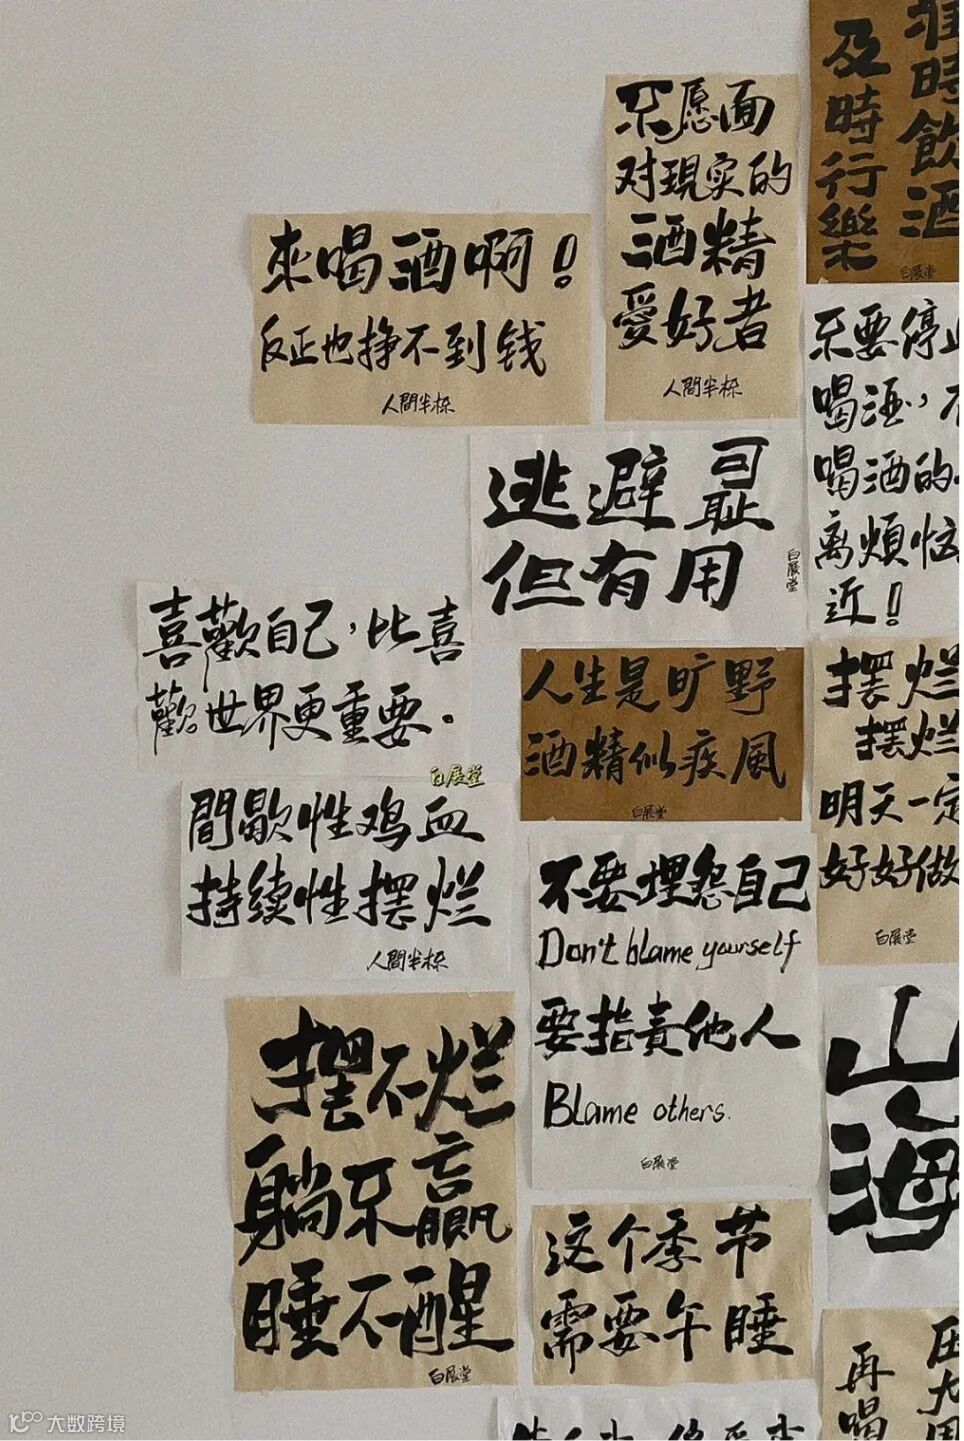 及時行樂
時飲酒
白展堂
不愿面
对現实的
酒精
愛好者
人間半柝
來喝酒啊！
反正也挣不到钱
人間半柝
不要停止
喝酒，不
喝酒的
离煩恼
近！
逃避可耻
但有用
白展堂
喜歡自己，比喜
歡世界更重要.
白展堂
人生是旷野
酒精似疾風
白展堂
摆烂
摆烂
明天一定
好好做
白展堂
間歇性鸡血
持续性摆烂
人間半柝
不要埋怨自己
Don't blame yourself
要指責他人
Blame others.
白展堂
山海
摆不烂
躺不贏
睡不醒
白展堂
这个季节
需要午睡
再喝
大数跨境